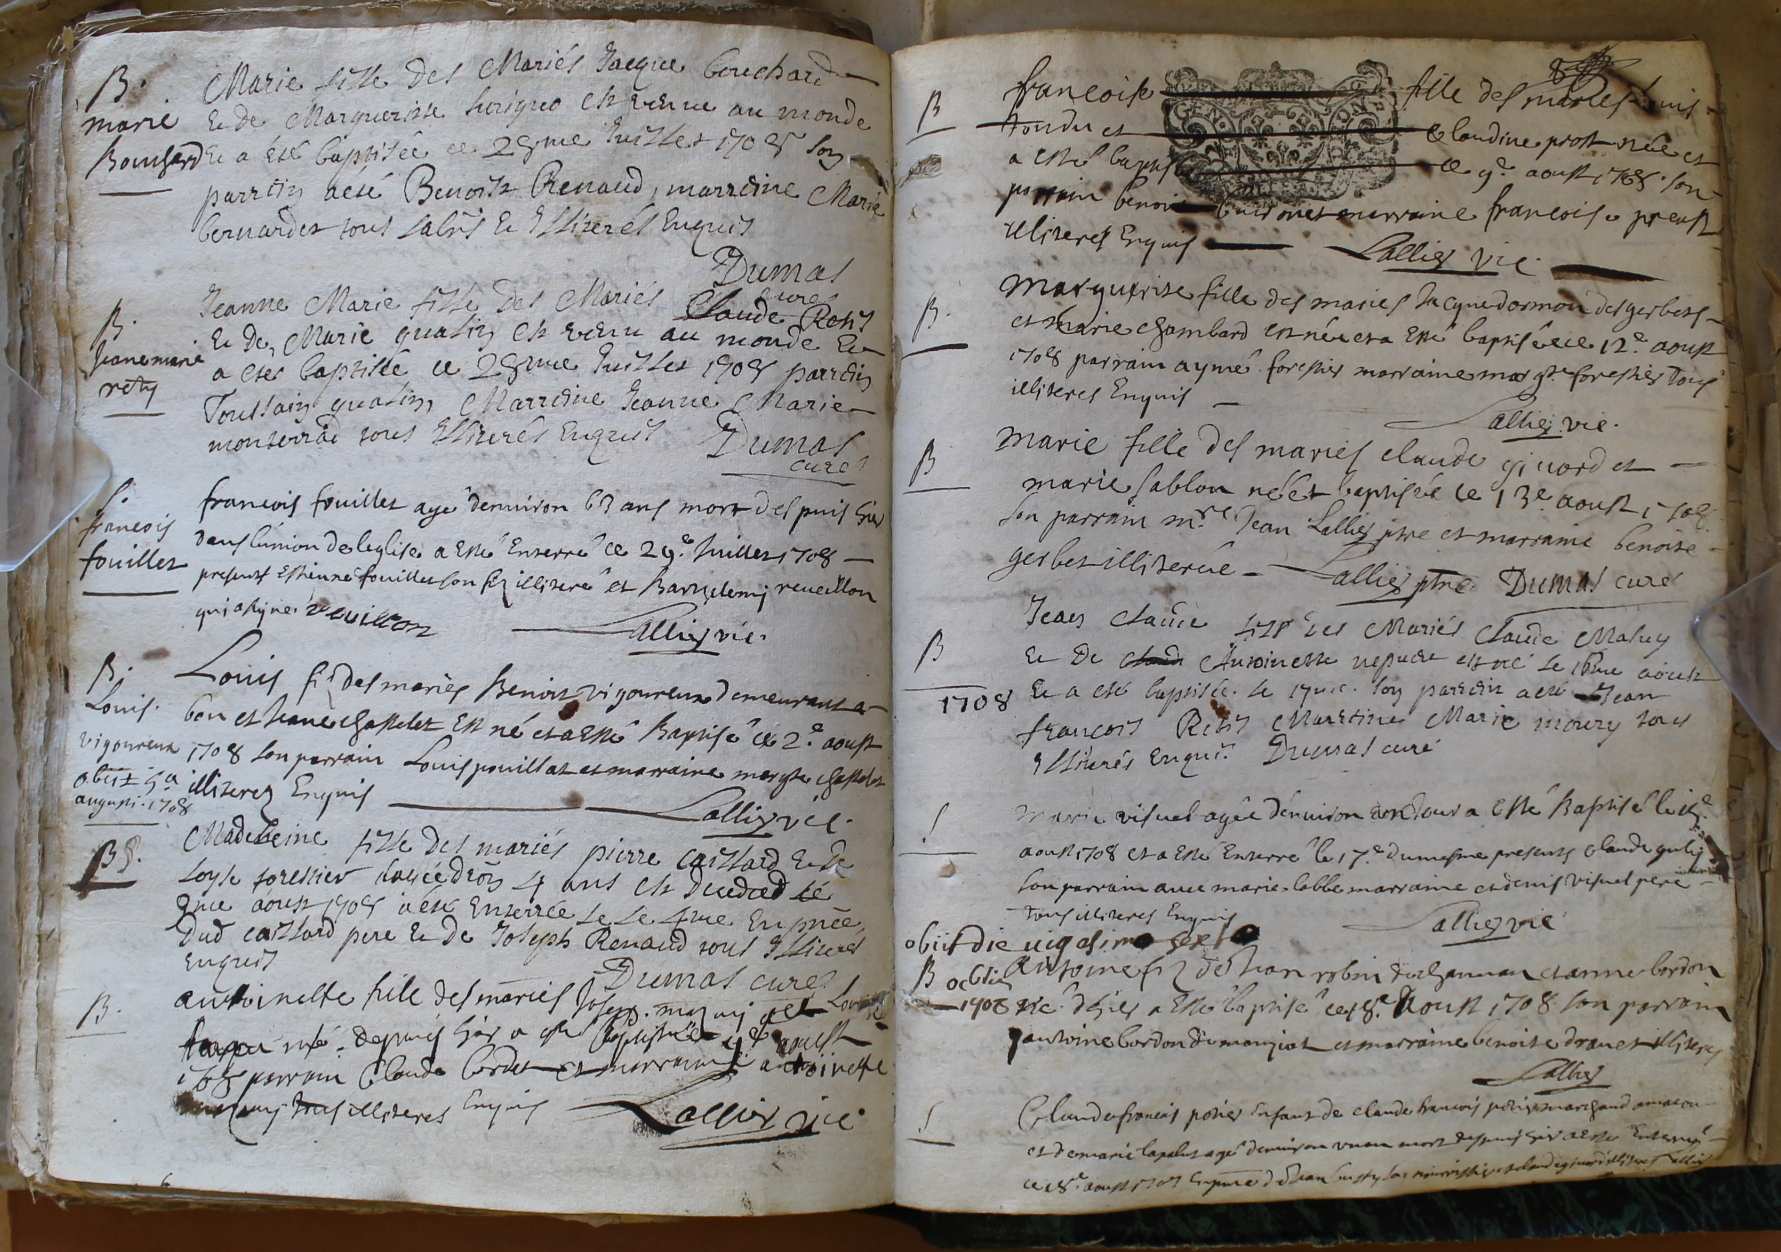 B.
marie
Bouchard
Marie fille des Mariés Jacque bouchard
Et de Marguerite est venue au monde
Et a été baptisée ce 28me Juillet 1708 son
parrein a été Benoist Renaud, marreine Marie
bernardet tous Et Illiterés Enquis
Dumas
curé
B.
Jeane marie
rety
Jeanne Marie fille des Mariés Claude Retis
Et de Marie qualin est venu au monde Et
a eté baptisée ce 28me Juillet 1708 parrein
Toussain qualin Marreine Jeanne Marie
tous Illiterés Enquis
Dumas
curé
S.
francois
fouillet
francois fouillet agé denuiron 63 ans mort despuis hier
dans lunion de leglise a esté Enterré ce 29e Juillet 1708
presents Estienne fouillet son fiz illiteré et Bartelemj reueillon
qui a signé reveillon
Lallier vic.
B.
Louis
vigoureux
obiit 5a
augusti 1708
Louis fiz des mariés Benoist vigoureux demeurant a
et Jeane chastelet Est né et a Esté Baptisé ce 2e aoust
1708 son parrain Louis pouillat et marraine margte chastelet
illiterez Enquis
Lallier vic.
BS.
Madeleine fille des mariés pierre caillard Et de
Loyse forestier 4 ans est decedee le
3me aoust 1708 a été Enterrée le 4me En pnce
Dud caillard pere Et de Joseph Renaud tous Illiteres
Enquis
Dumas curé
B.
antoinette fille des mariés Joseph et Louise
née depuis hier a esté Baptisée aoust
1708 parrain Claude et marraine antoinette
tous illiteres Enquis
Lallier vic.
8
B
francoise fille des maries
tondu et Claudine prost née et
a esté baptisée ce 9e aoust 1708 son
parrain benoit marraine francoise
illiteres Enquis
Lallier vic.
B.
Marguerite fille des maries Jacque dormon des gerbets
et Marie chambard est née et a Esté baptisée ce 12e aoust
1708 parrain aymé forestier marraine margte forestier Tous
illiteres Enquis
Lallier vic.
B
Marie fille des maries claude giuord et
marie sablon née et baptisée ce 13e aoust 1708
son parrain mre Jean Lallier ptre et marraine benoite
gerbet illiterée
Lallier ptre Dumas curé
B
1708
Jean Claude fils des Mariés Claude
Et De Antoinette est né le 16me aoust
Et a eté baptisée le 17me son parrein a été Jean
francois Retis Marreine Marie moury tous
Illiterés Enquis Dumas curé
S
Marie visuel agée denuiron un Jour a Esté Baptisé le
aoust 1708 et a Esté Enterré le 17e du mesme presents claude
son parrain auec marie labbe marraine et denis visuel pere
Tous illiteres Enquis
Lallier vic
obiit die uigesima sexta
B
octob
1708
Antoine fiz de Jean robin de chanuan et anne bordon
né d'hier a Esté baptisé ce 18e Aoust 1708 son parrain
antoine bordon de et marraine benoite drouet illiteres
Lallier
S
Claude francois potier Enfant de claude francois potier marchand a macon
et de marie lapalus agé denuiron un an mort despuis hier a esté Enterré
ce 18e aoust 1708